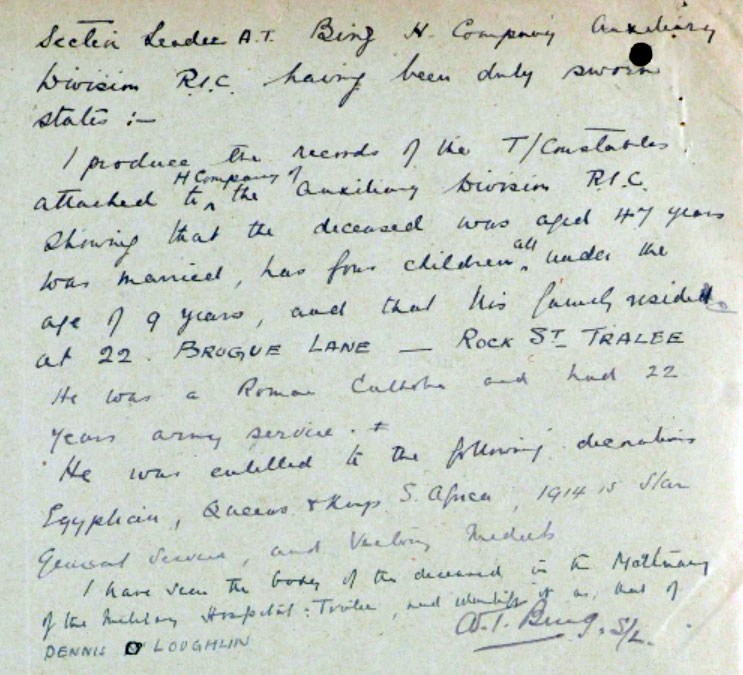 Section Leader A.T. Bing H. Company Auxiliary
Division R.I.C. having been duly sworn
states :-
I produce the records of the T/Constables
attached to H Company of the Auxiliary Division R.I.C.
showing that the deceased was aged 47 years
was married, has four children all under the
age of 9 years, and that his family resides
at 22. BROGUE LANE — ROCK ST TRALEE
He was a Roman Catholic and had 22
years army service. +
He was entitled to the following decorations
Egyptian, Queens & Kings S. Africa, 1914 15 Star
General Service, and Victory Medals
I have seen the body of the deceased in the Mortuary
of the Military Hospital: Tralee, and identify it as, that of
DENNIS O LOUGHLIN
A.T. Bing. S/L.